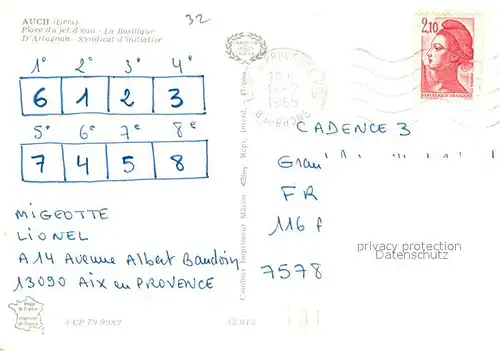 AUCH (Gers)
32
Place du jet d'eau - La Basilique
D'Artagnan - Syndicat d'initiative
1° 2° 3° 4°
6 1 2 3
5° 6e 7e 8e
7 4 5 8
MIGEOTTE
LIONEL
A 14 Avenue Albert Baudoin
13090 AIX en PROVENCE
Image de France
Imprimée en France
FCP 79 9982
32.013
Combier Imprimeur Mâcon
Repr. Interd.
2,10
1985
CADENCE 3
FR
116
7578
privacy protection
Datenschutz